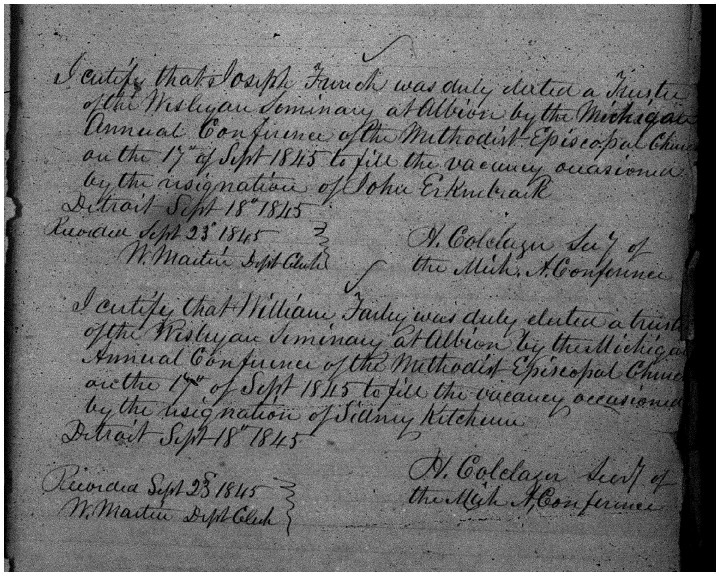 I certify that Joseph French was duly elected a Trustee
of the Wesleyan Seminary at Albion by the Michigan
Annual Conference of the Methodist Episcopal Church
on the 17" of Sept 1845 to fill the vacancy occasioned
by the resignation of John Erkenbrack
Detroit Sept 18" 1845
Recorded Sept 23" 1845
W. Martin Dept Clerk
H. Colclazer Secy of
the Mich. A. Conference
I certify that William Farley was duly elected a trustee
of the Wesleyan Seminary at Albion by the Michigan
Annual Conference of the Methodist Episcopal Church
on the 17" of Sept 1845 to fill the vacancy occasioned
by the resignation of Sidney Ketchum
Detroit Sept 18" 1845
H. Colclazer Secry of
the Mich A, Conference
Recorded Sept 23 1845
W. Martin Dept Clerk